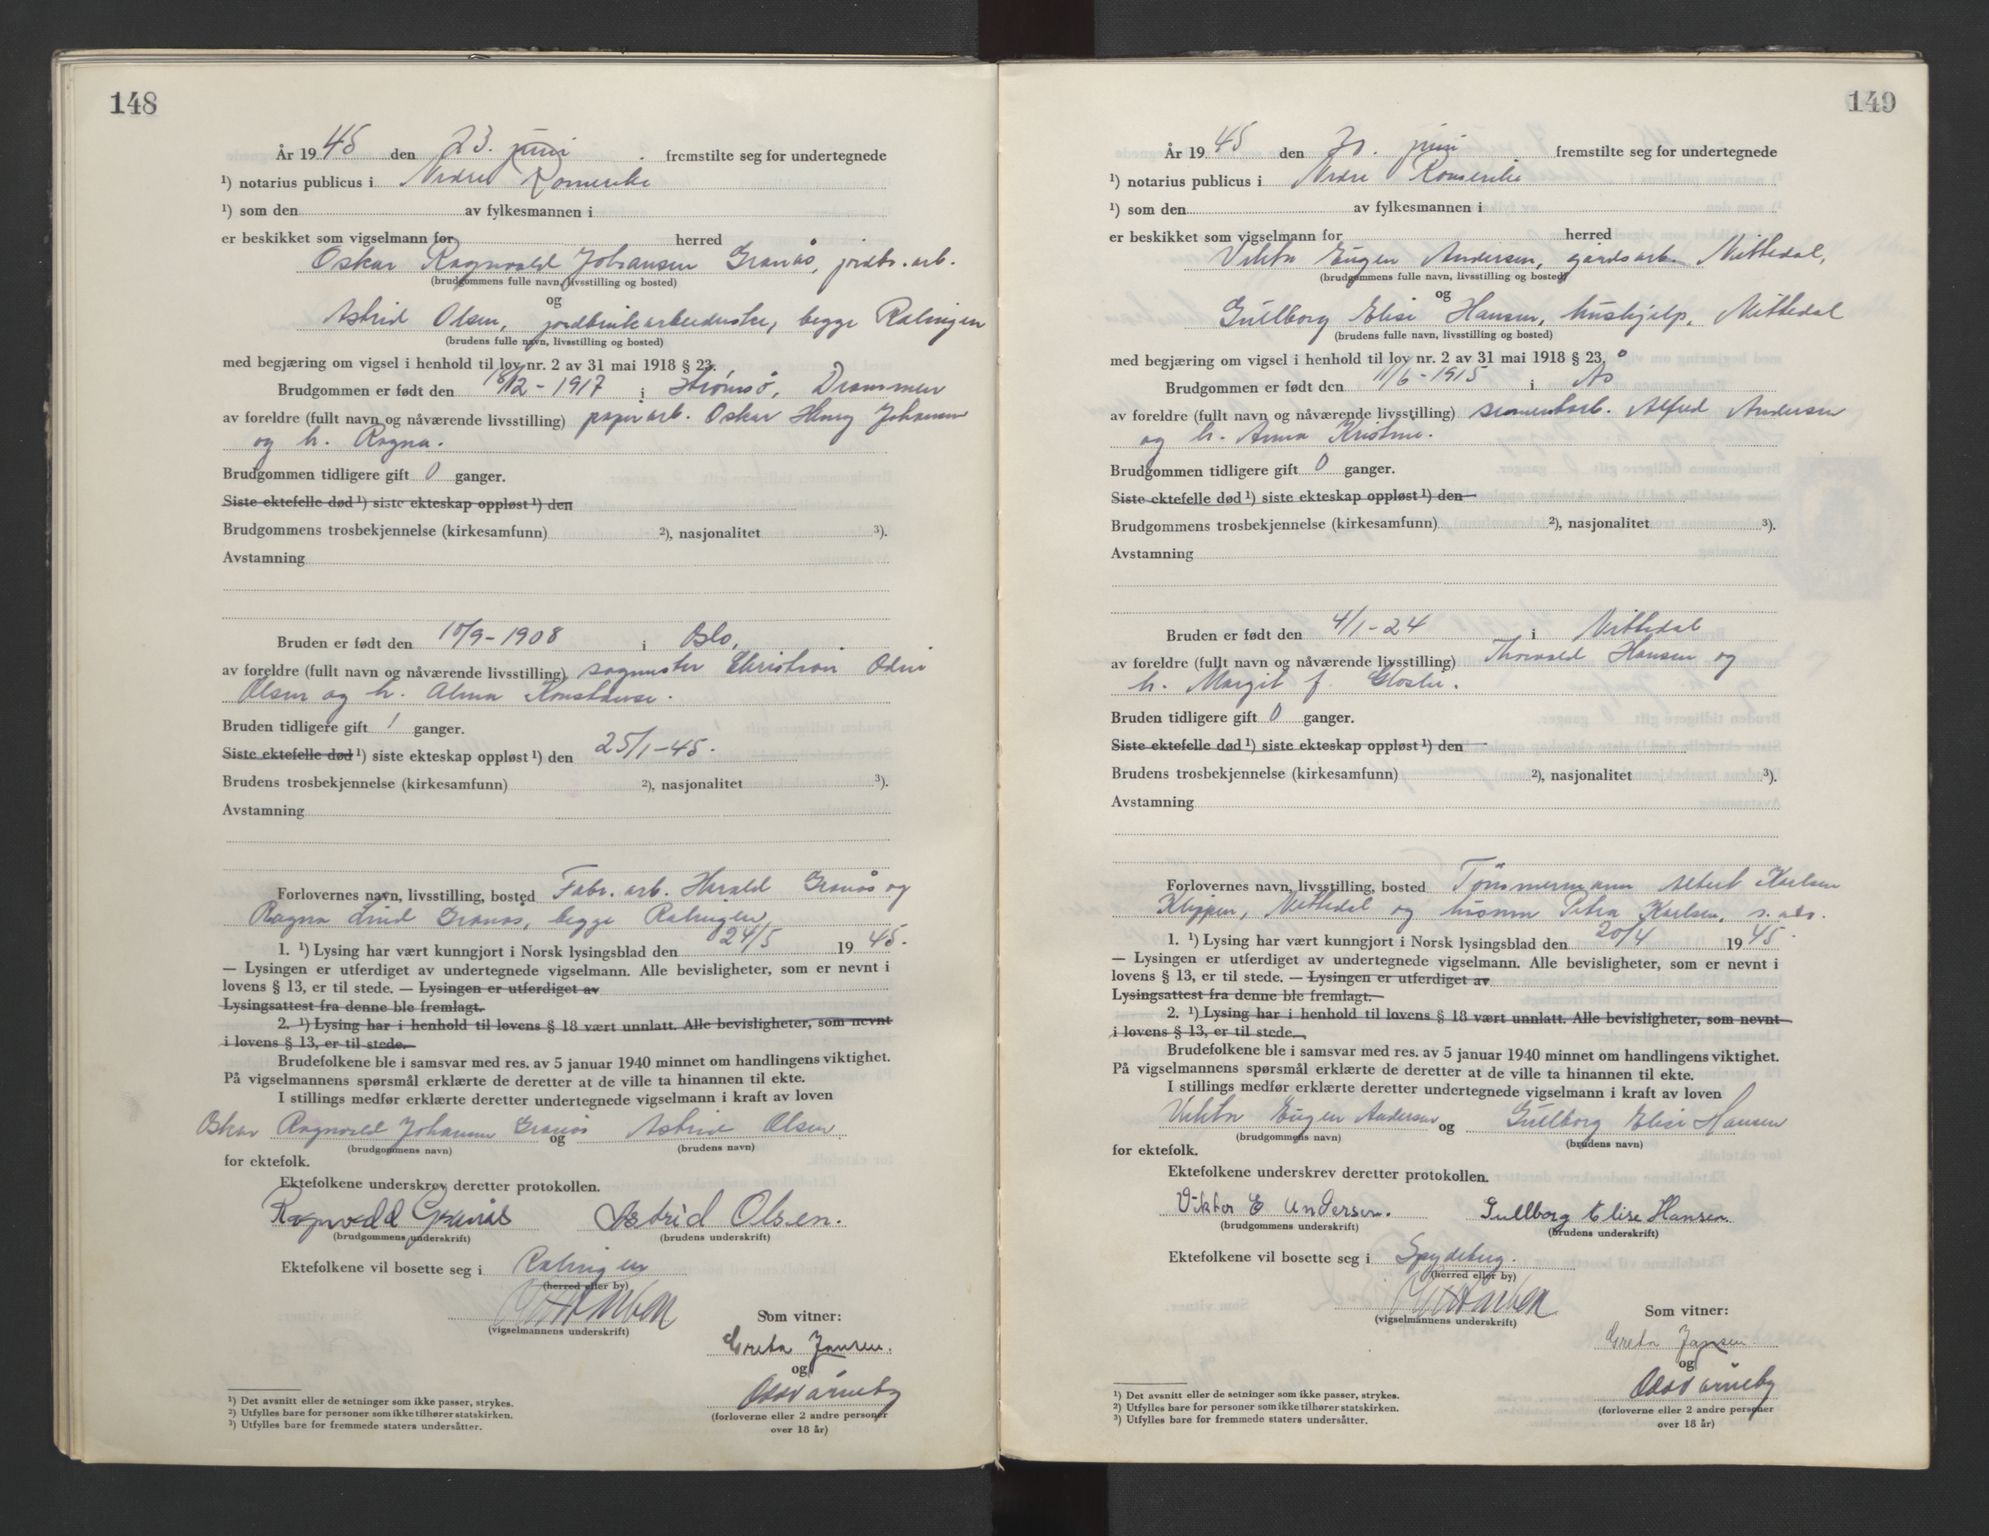 148
År 1945 den 23. juni fremstilte seg for undertegnede
¹) notarius publicus i Nedre Romerike
¹) som den av fylkesmannen i
er beskikket som vigselmann for herred
Oskar Ragnvald Johansen Granås, jordbr.arb.
(brudgommens fulle navn, livsstilling og bosted)
og
Astrid Olsen, jordbrukarbeiderske, begge Rælingen
(brudens fulle navn, livsstilling og bosted)
med begjæring om vigsel i henhold til lov nr. 2 av 31 mai 1918 § 23.
Brudgommen er født den /12-1917 i Strømsø, Drammen
av foreldre (fullt navn og nåværende livsstilling) papirarb. Oskar Henry Johansen
og h. Ragna.
Brudgommen tidligere gift 0 ganger.
Siste ektefelle død ¹) siste ekteskap oppløst ¹) den
Brudgommens trosbekjennelse (kirkesamfunn) ²), nasjonalitet ³).
Avstamning
Bruden er født den 10/9-1908 i Oslo,
av foreldre (fullt navn og nåværende livsstilling) sagmester Christian Odin
Olsen og h. Alma Konstanse.
Bruden tidligere gift 1 ganger.
Siste ektefelle død ¹) siste ekteskap oppløst ¹) den 25/1-45.
Brudens trosbekjennelse (kirkesamfunn) ²), nasjonalitet ³).
Avstamning
Forlovernes navn, livsstilling, bosted Fabr. arb. Harald Granås og
Ragna Lind Granås, begge Rælingen,
1. ¹) Lysing har vært kunngjort i Norsk lysingsblad den 24/5 1945.
— Lysingen er utferdiget av undertegnede vigselmann. Alle bevisligheter, som er nevnt i
lovens § 13, er til stede. — Lysingen er utferdiget av
Lysingsattest fra denne ble fremlagt.
2. ¹) Lysing har i henhold til lovens § 18 vært unnlatt. Alle bevisligheter, som nevnt
i lovens § 13, er til stede.
Brudefolkene ble i samsvar med res. av 5 januar 1940 minnet om handlingens viktighet.
På vigselmannens spørsmål erklærte de deretter at de ville ta hinannen til ekte.
I stillings medfør erklærte deretter undertegnede vigselmann i kraft av loven
Oskar Ragnvald Johansen Granås og Astrid Olsen
(brudgommens navn) (brudens navn)
for ektefolk.
Ektefolkene underskrev deretter protokollen.
Ragnvald Granås Astrid Olsen.
(brudgommens underskrift) (brudens underskrift)
Ektefolkene vil bosette seg i Rælingen
(herred eller by)
(vigselmannens underskrift)
Som vitner:
Greta Jansen.
og
Odd Årneby
(forloverne eller 2 andre personer
over 18 år)
¹) Det avsnitt eller de setninger som ikke passer, strykes.
²) Utfylles bare for personer som ikke tilhører statskirken.
³) Utfylles bare for fremmede staters undersåtter.
149
År 1945 den 30. juni fremstilte seg for undertegnede
¹) notarius publicus i Nedre Romerike
¹) som den av fylkesmannen i
er beskikket som vigselmann for herred
Viktor Eugen Andersen, gårdsarb. Nittedal,
(brudgommens fulle navn, livsstilling og bosted)
og
Gullborg Elise Hansen, hushjelp, Nittedal
(brudens fulle navn, livsstilling og bosted)
med begjæring om vigsel i henhold til lov nr. 2 av 31 mai 1918 § 23.
Brudgommen er født den 11/6-1915 i Ås
av foreldre (fullt navn og nåværende livsstilling) sementarb. Alfred Andersen
og h. Anna Kristine.
Brudgommen tidligere gift 0 ganger.
Siste ektefelle død ¹) siste ekteskap oppløst ¹) den
Brudgommens trosbekjennelse (kirkesamfunn) ²), nasjonalitet ³).
Avstamning
Bruden er født den 4/1-24 i Nittedal
av foreldre (fullt navn og nåværende livsstilling) Thorvald Hansen og
h. Margit f. Gloslie.
Bruden tidligere gift 0 ganger.
Siste ektefelle død ¹) siste ekteskap oppløst ¹) den
Brudens trosbekjennelse (kirkesamfunn) ²), nasjonalitet ³).
Avstamning
Forlovernes navn, livsstilling, bosted Tømmermann Albert Karlsen
Klippen, Nittedal og hustru Petra Karlsen, s. ads.
1. ¹) Lysing har vært kunngjort i Norsk lysingsblad den 20/4 1945.
— Lysingen er utferdiget av undertegnede vigselmann. Alle bevisligheter, som er nevnt i
lovens § 13, er til stede. — Lysingen er utferdiget av
Lysingsattest fra denne ble fremlagt.
2. ¹) Lysing har i henhold til lovens § 18 vært unnlatt. Alle bevisligheter, som nevnt
i lovens § 13, er til stede.
Brudefolkene ble i samsvar med res. av 5 januar 1940 minnet om handlingens viktighet.
På vigselmannens spørsmål erklærte de deretter at de ville ta hinannen til ekte.
I stillings medfør erklærte deretter undertegnede vigselmann i kraft av loven
Viktor Eugen Andersen og Gullborg Elise Hansen
(brudgommens navn) (brudens navn)
for ektefolk.
Ektefolkene underskrev deretter protokollen.
Viktor E Andersen. Gullborg Elise Hansen.
(brudgommens underskrift) (brudens underskrift)
Ektefolkene vil bosette seg i Spydeberg.
(herred eller by)
(vigselmannens underskrift)
Som vitner:
Greta Jansen.
og
Odd Årneby
(forloverne eller 2 andre personer
over 18 år)
¹) Det avsnitt eller de setninger som ikke passer, strykes.
²) Utfylles bare for personer som ikke tilhører statskirken.
³) Utfylles bare for fremmede staters undersåtter.